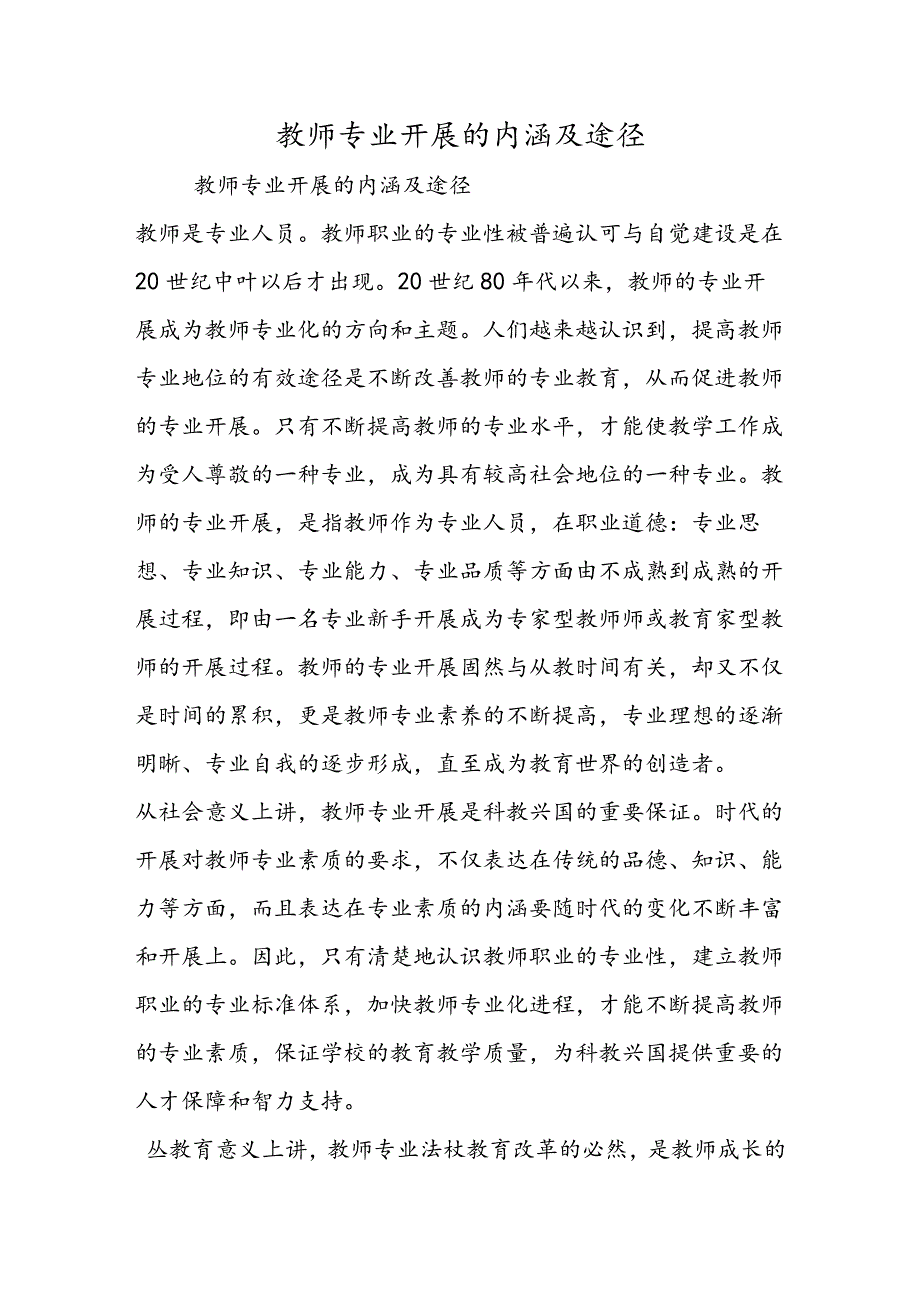 教师专业开展的内涵及途径
教师专业开展的内涵及途径
教师是专业人员。教师职业的专业性被普遍认可与自觉建设是在
20世纪中叶以后才出现。20世纪80年代以来，教师的专业开
展成为教师专业化的方向和主题。人们越来越认识到，提高教师
专业地位的有效途径是不断改善教师的专业教育，从而促进教师
的专业开展。只有不断提高教师的专业水平，才能使教学工作成
为受人尊敬的一种专业，成为具有较高社会地位的一种专业。教
师的专业开展，是指教师作为专业人员，在职业道德：专业思
想、专业知识、专业能力、专业品质等方面由不成熟到成熟的开
展过程，即由一名专业新手开展成为专家型教师师或教育家型教
师的开展过程。教师的专业开展固然与从教时间有关，却又不仅
是时间的累积，更是教师专业素养的不断提高，专业理想的逐渐
明晰、专业自我的逐步形成，直至成为教育世界的创造者。
从社会意义上讲，教师专业开展是科教兴国的重要保证。时代的
开展对教师专业素质的要求，不仅表达在传统的品德、知识、能
力等方面，而且表达在专业素质的内涵要随时代的变化不断丰富
和开展上。因此，只有清楚地认识教师职业的专业性，建立教师
职业的专业标准体系，加快教师专业化进程，才能不断提高教师
的专业素质，保证学校的教育教学质量，为科教兴国提供重要的
人才保障和智力支持。
丛教育意义上讲，教师专业法杖教育改革的必然，是教师成长的